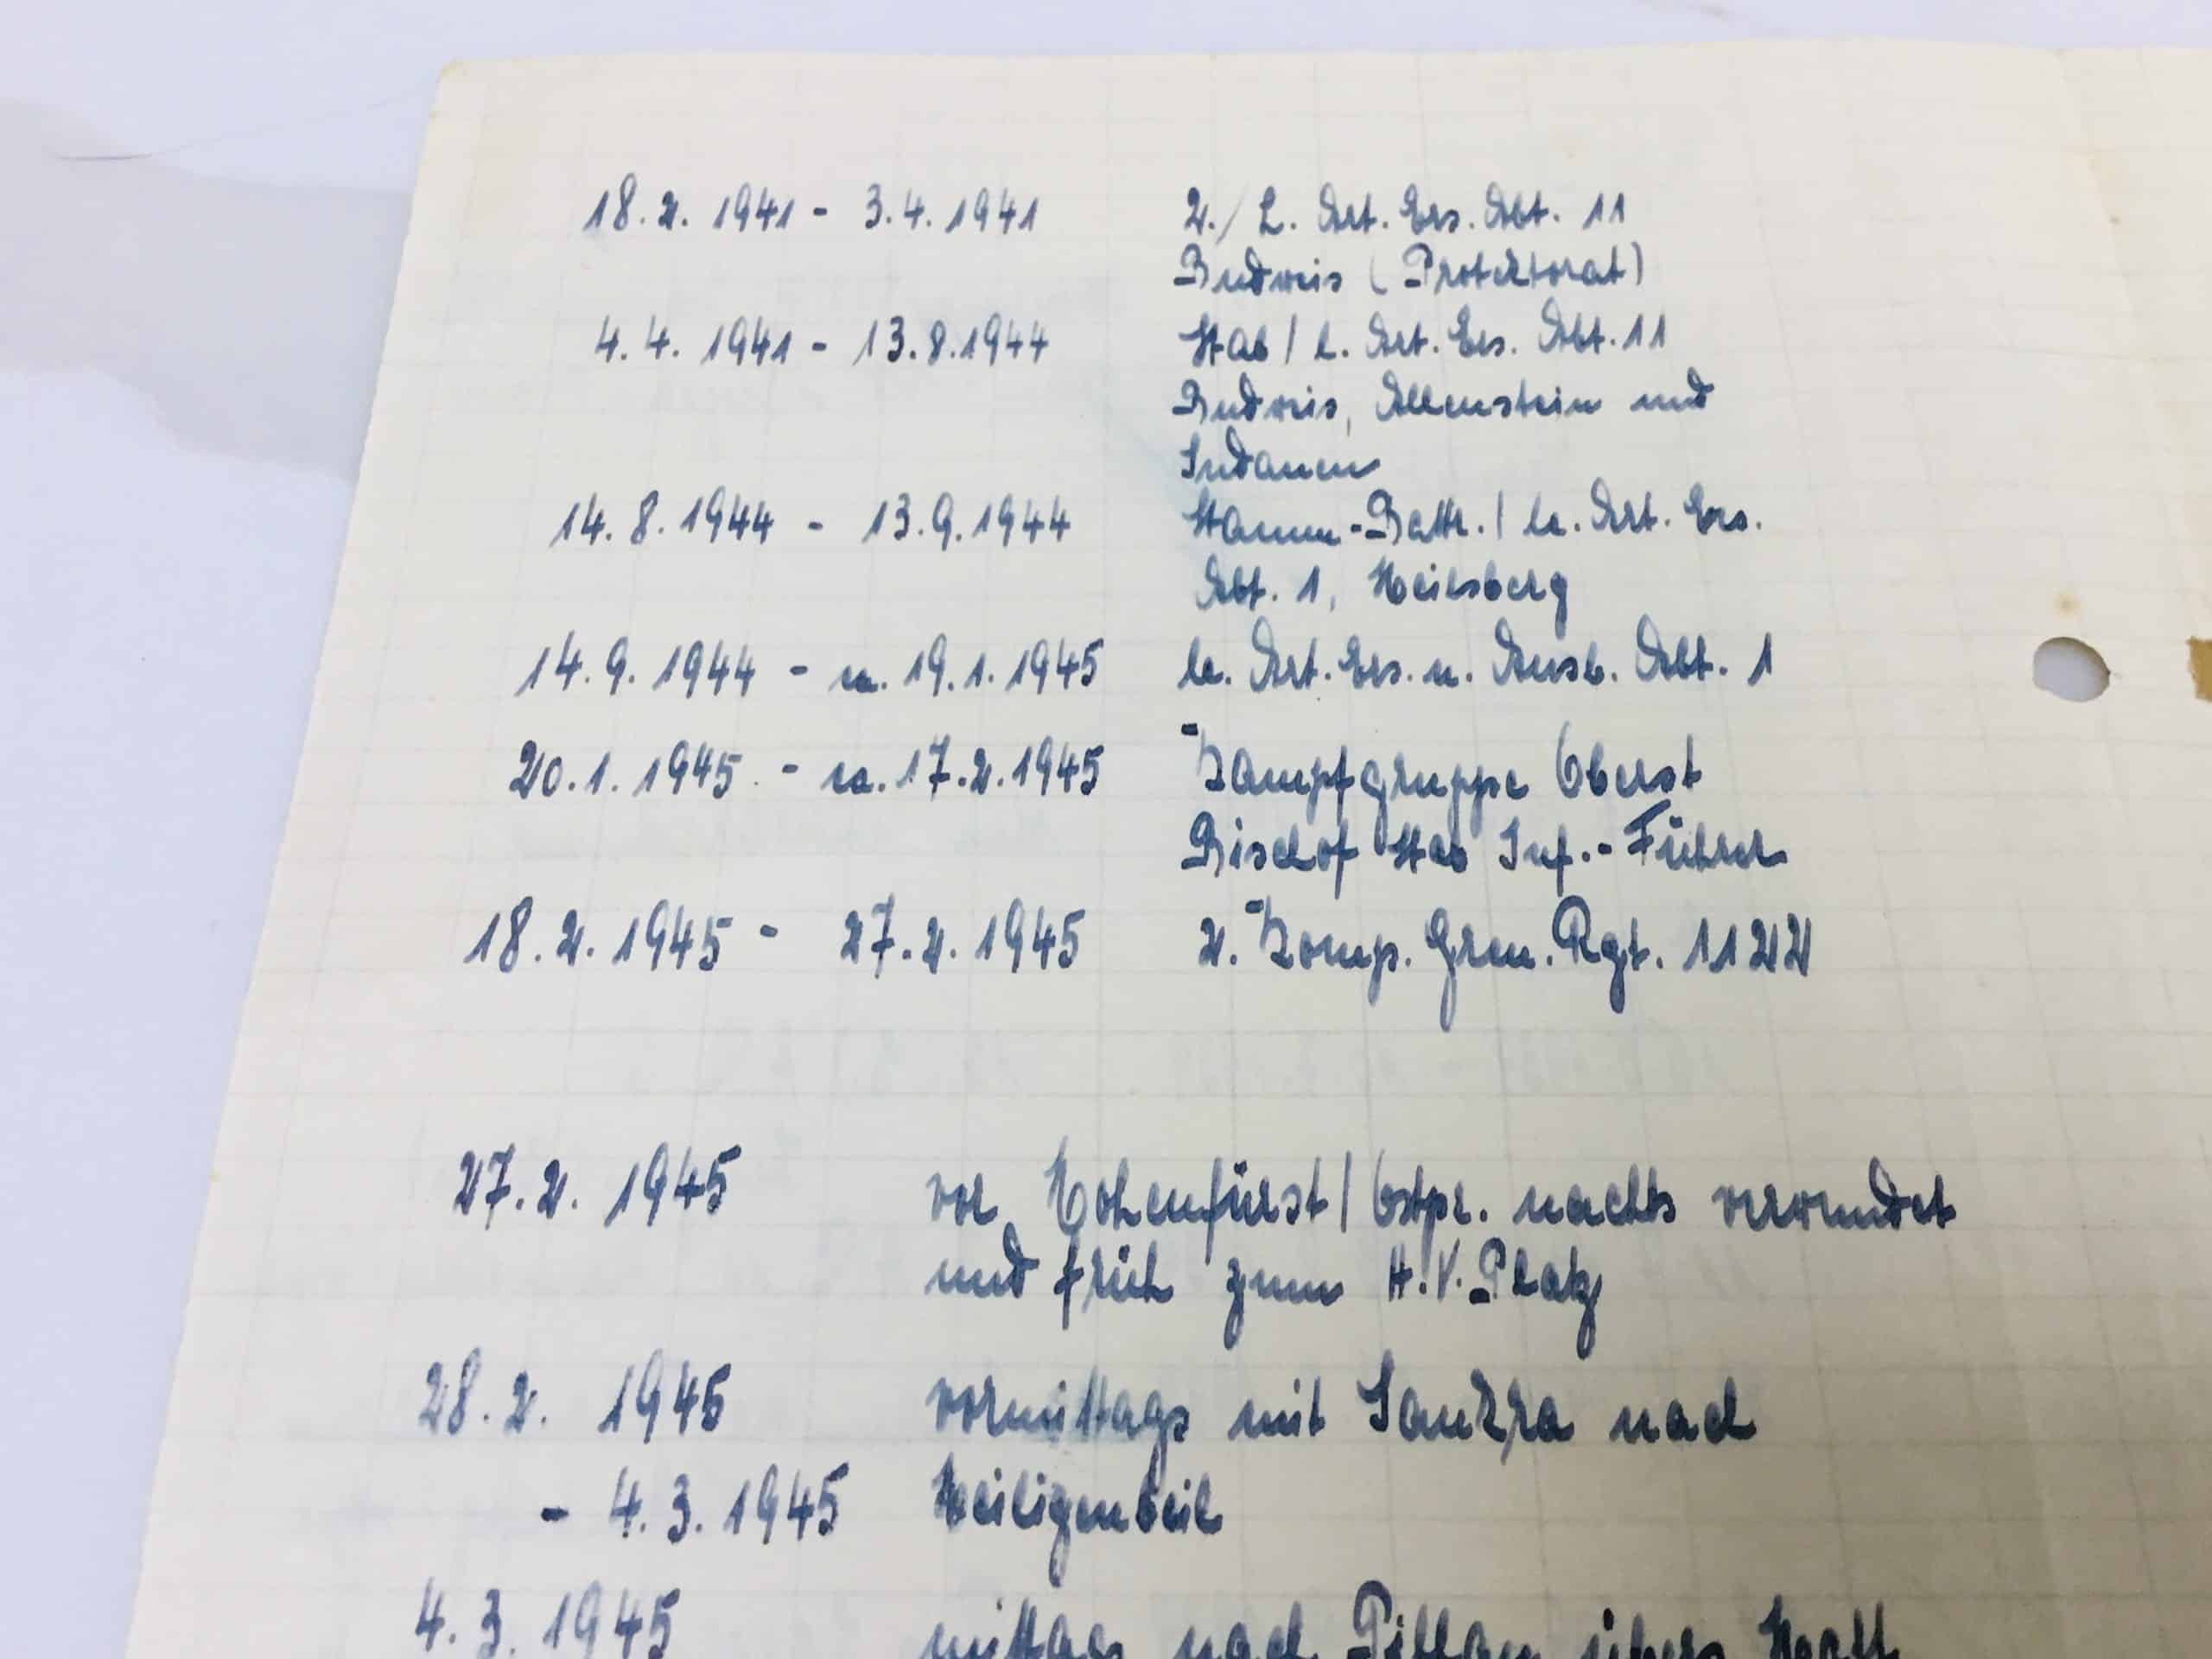 18.2. 1941 - 3.4. 1941 2./ L. Art. Ers. Abt. 11
Budweis (Protektorat)
4.4. 1941 - 13.8.1944 Stab / l. Art. Ers. Abt. 11
Budweis, Allenstein und
Sudauen
14.8.1944 - 13.9.1944 Stamm-Battr. / le. Art. Ers.
Abt. 1, Heilsberg
14.9.1944 - ca. 19.1.1945 le. Art. Ers. u. Ausb. Abt. 1
20.1.1945 - ca. 17.2.1945 Kampfgruppe Oberst
Bischof Stab Inf.-Führer
18.2.1945 - 27.2.1945 2. Komp. Gren. Rgt. 1122
27.2. 1945 vor Hohenfürst / Ostpr. nachts verwundet
und früh zum H.V. Platz
28.2. 1945 vormittags mit Sankra nach
- 4.3.1945 Heiligenbeil
4.3. 1945 mittags nach Pillau übers Haff